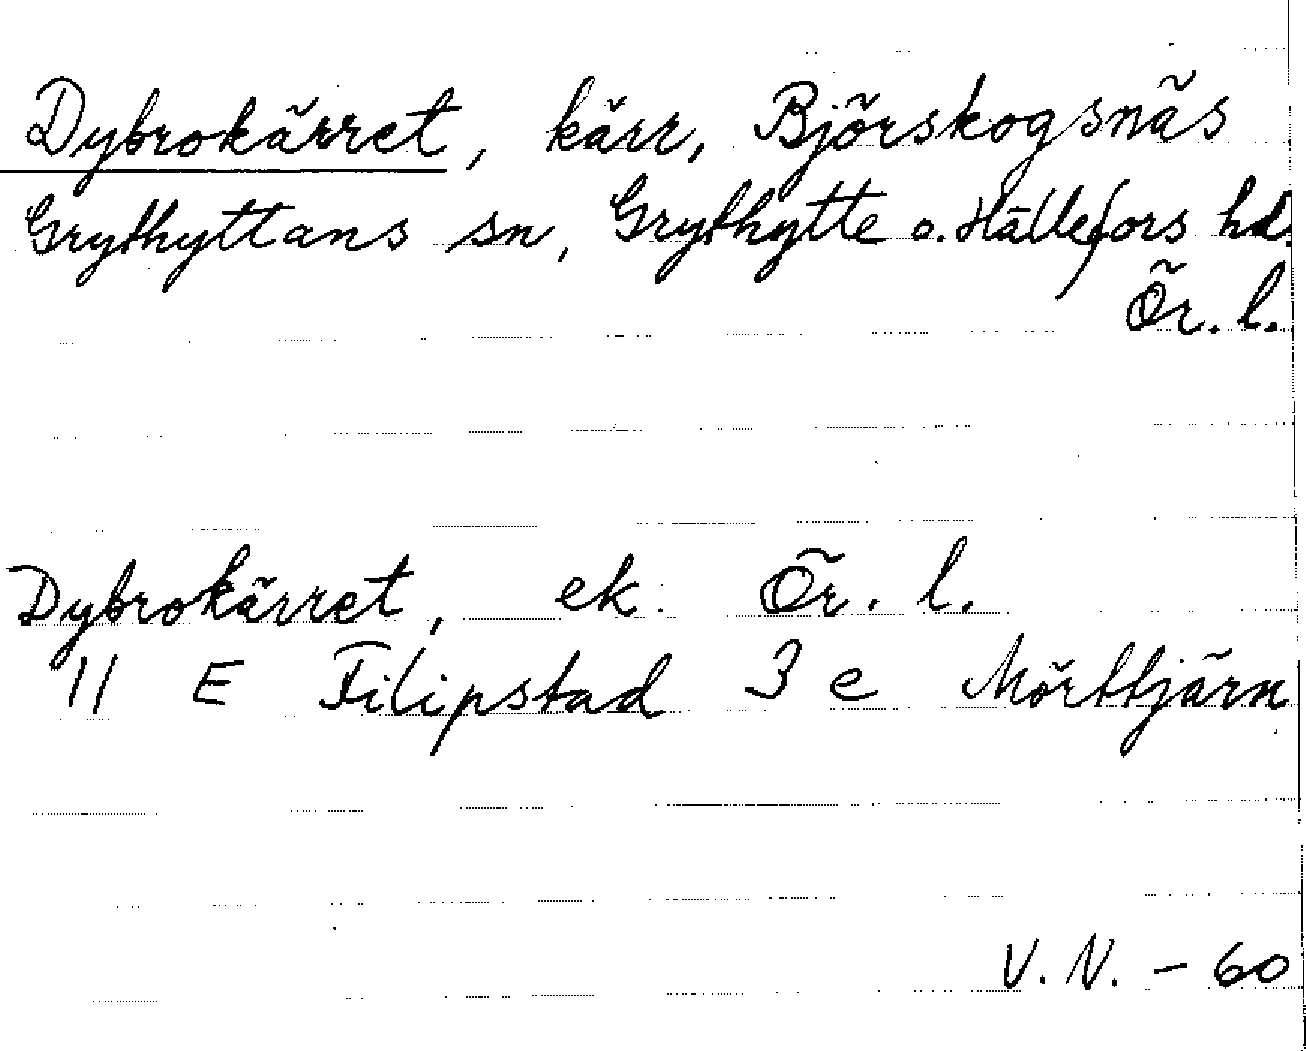 Dybrokärret, kärr, Björskogsnäs
Grythyttans sn, Grythytte o. Hällefors hd.
Ör. l.
Dybrokärret, ek. Ör. l.
11 E Filipstad 3 e Mörttjärn
V. N. - 60